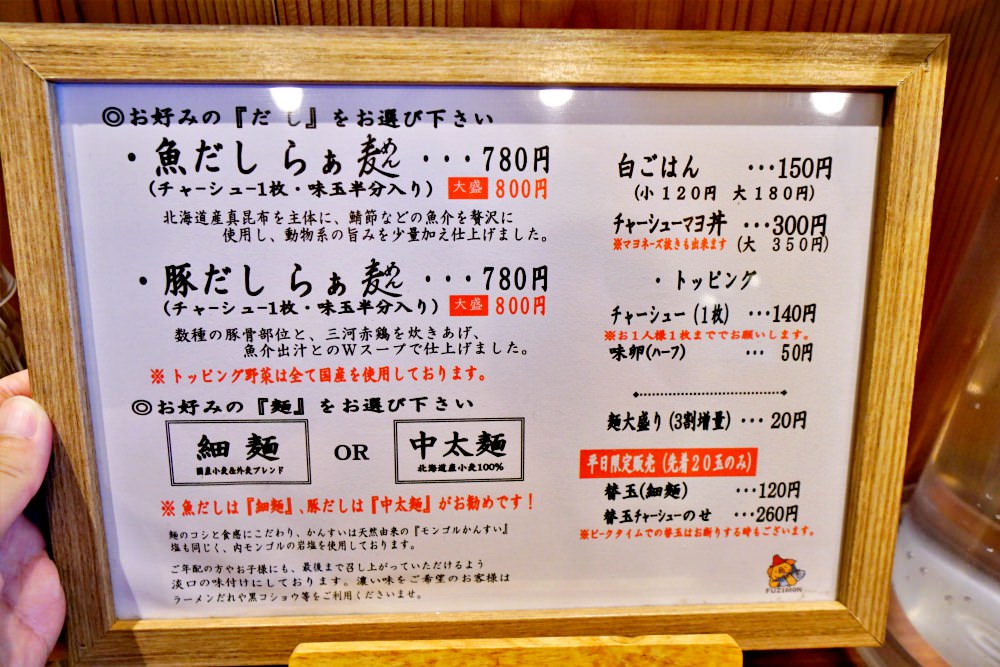 ◎お好みの『だし』をお選び下さい
・魚だし らぁ麺めん ・・・780円
(チャーシュー1枚・味玉半分入り) 大盛 800円
北海道産真昆布を主体に、鯖節などの魚介を贅沢に
使用し、動物系の旨みを少量加え仕上げました。
・豚だし らぁ麺めん ・・・780円
(チャーシュー1枚・味玉半分入り) 大盛 800円
数種の豚骨部位と、三河赤鶏を炊きあげ、
魚介出汁とのWスープで仕上げました。
※トッピング野菜は全て国産を使用しております。
◎お好みの『麺』をお選び下さい
細麺
国産小麦&外麦ブレンド
OR
中太麺
北海道産小麦100%
※魚だしは『細麺』、豚だしは『中太麺』がお勧めです!
麺のコシと食感にこだわり、かんすいは天然由来の『モンゴルかんすい』
塩も同じく、内モンゴルの岩塩を使用しております。
ご年配の方やお子様にも、最後まで召し上がっていただけるよう
淡口の味付けにしております。濃い味をご希望のお客様は
ラーメンだれや黒コショウ等をご利用くださいませ。
白ごはん ・・・150円
(小 120円 大 180円)
チャーシューマヨ丼 ・・・300円
※マヨネーズ抜きも出来ます (大 350円)
・トッピング
チャーシュー(1枚) ・・・140円
※お1人様1枚まででお願いします。
味卵(ハーフ) ・・・ 50円
麺大盛り(3割増量) ・・・20円
平日限定販売(先着20玉のみ)
替玉(細麺) ・・・120円
替玉チャーシューのせ ・・・260円
※ピークタイムでの替玉はお断りする時もございます。
FUZIMON